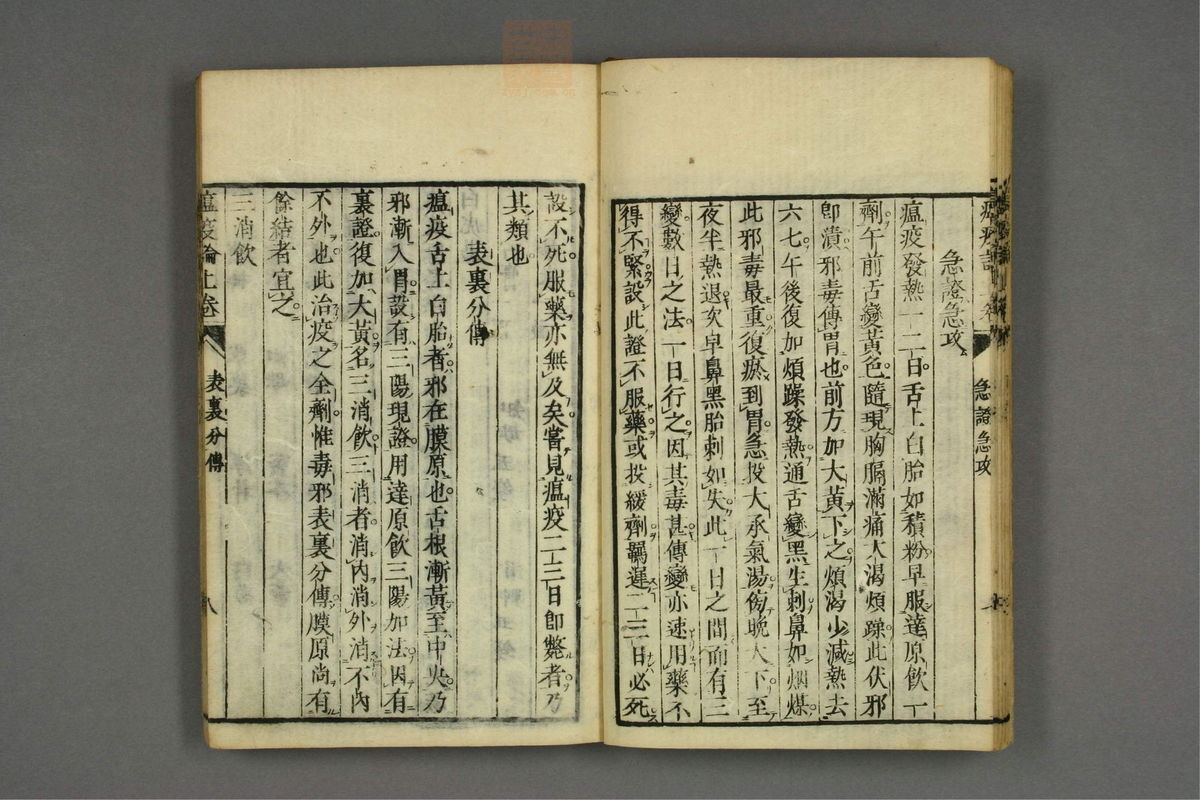 急證急攻
瘟疫發熱一二日舌上白胎如積粉早服達原飲一
劑午前舌變黃色隨現胸膈滿痛大渴煩躁此伏邪
卽潰邪毒傳胃也前方加大黃下之煩渴少減熱去
六七午後復加煩躁發熱通舌變黑生刺鼻如烟煤
此邪毒最重復瘀到胃急投大承氣湯傍晚大下至
夜半熱退次早鼻黑胎刺如失此一日之間而有三
變數日之法一日行之因其毒甚傳變亦速用藥不
得不緊設此證不服藥或投緩劑羈遲二三日必死
急證急攻
設不死服藥亦無及矣嘗見瘟疫二三日卽斃者乃
其類也
表裏分傳
瘟疫舌上白胎者邪在膜原也舌根漸黃至中央乃
邪漸入胃設有三陽現證用達原飲三陽加法因有
裏證復加大黃名三消飲三消者消內消外消不內
不外也此治疫之全劑惟毒邪表裏分傳膜原尚有
餘結者宜之
三消飲
瘟疫論上卷
表裏分傳
八